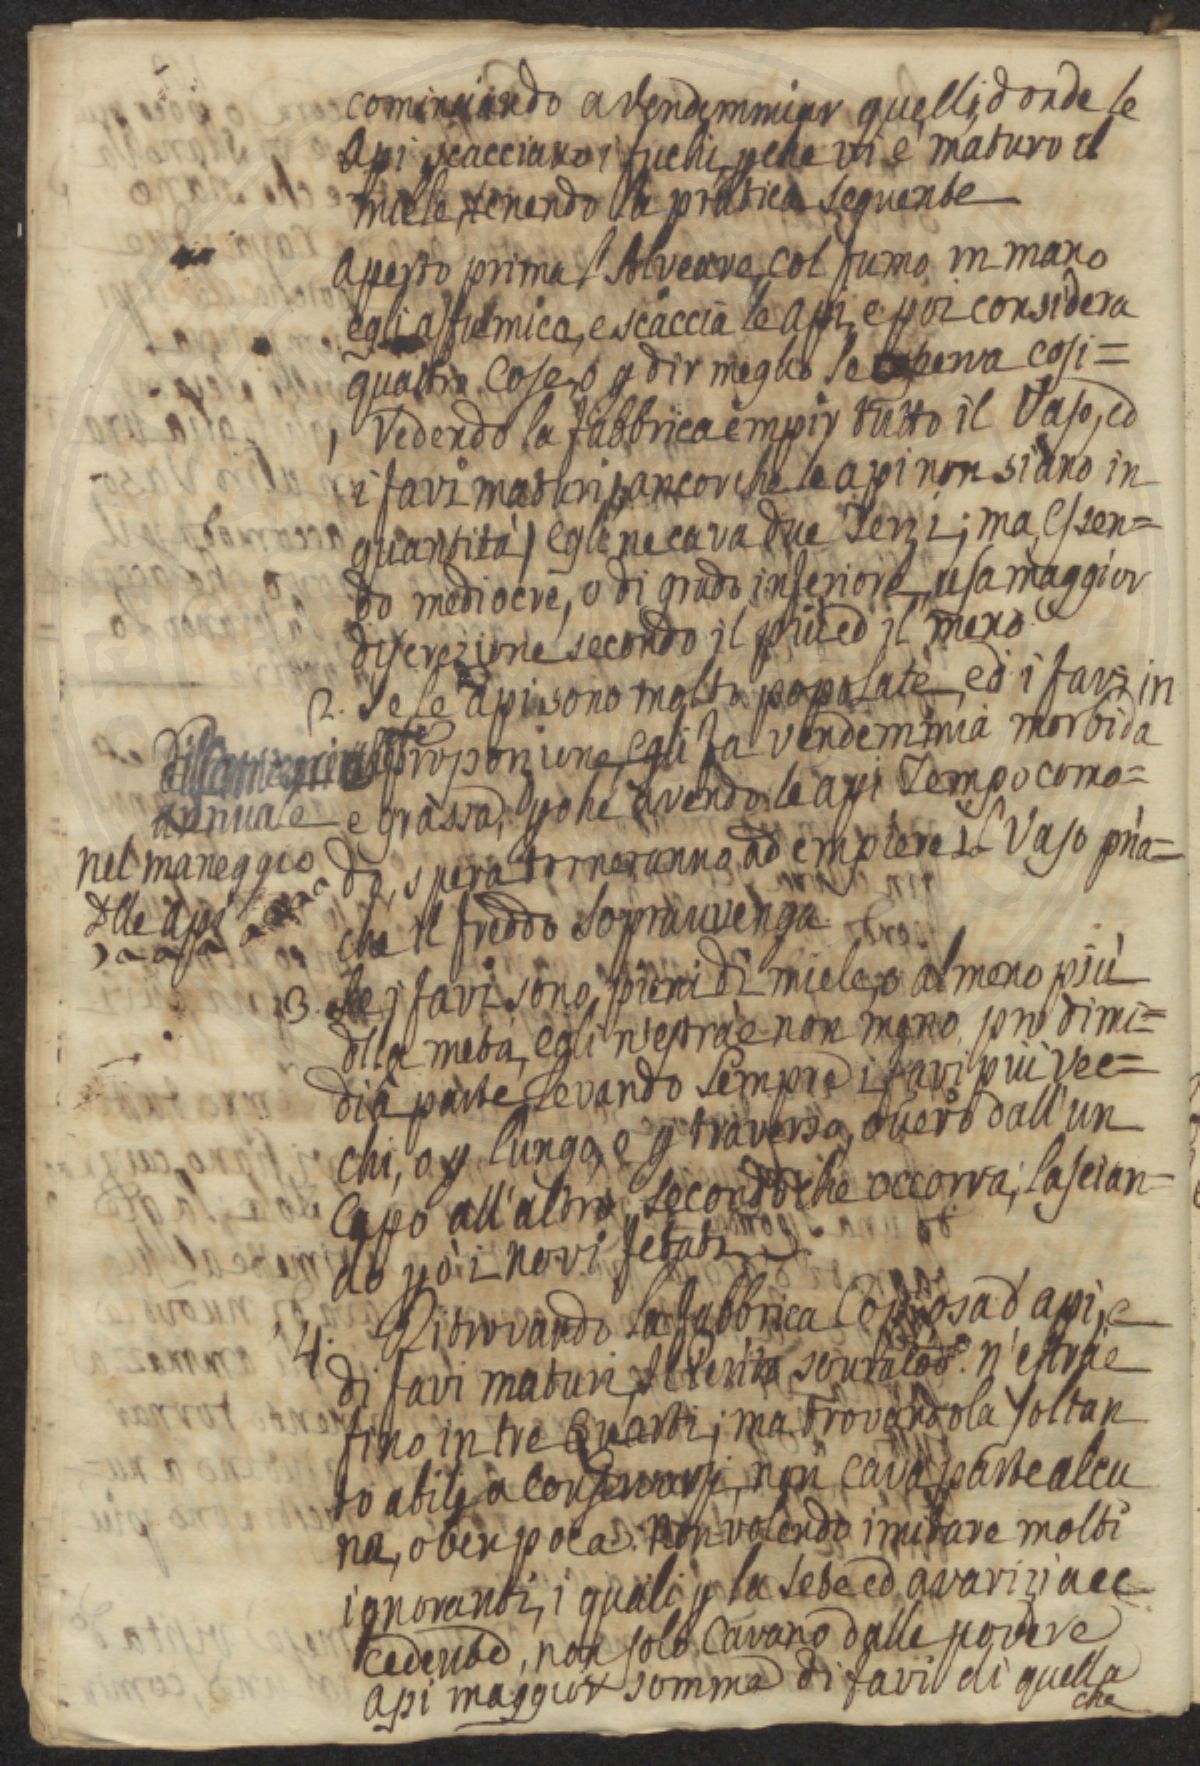 cominciando a vendemmiar quelli, donde le
Api scacciano i fuchi, p che vi è maturo il
miele, tenendo la pratica seguente
Aperto prima l'Alveare, col fumo in mano
egli affumica, e scaccia le Api, e poi considera
quattro Cose, o p dir meglio se osserva cosi=
1 Vedendo la fabbrica empir tutto il Vaso, ed
i favi maturi, ancorche le api non siano in
quantità, egli ne cava due Terzi; ma, essen=
do mediocre, o di grado inferiore, usa maggior
discrezione secondo il più ed il meno.
2. Se le Api sono molto popolate, ed i favi in
proporzione, egli fa vendemmia morbida
e grassa, p che avendo le api Tempo como=
do, spera torneranno ad empiere il Vaso p̄ria=
che il freddo sopravvenga.
annuale
nel maneggio
dlle Api
3. Se i favi sono pieni di miele, o almeno più
dlla metà, egli n'estrae non meno, p la dimi=
dia parte levando sempre i favi più vec=
chi, o p lungo, e p traverso, overo dall'un
Capo all'altro secondo che occorra; lascian=
do p ò i novi fetati.
4. Ritrovando la fabbrica Copiosa d'api, e
di favi maturi, n'estrae
fino in tre Quarti; ma trovandola soltan
to abile a conservarsi, non cava parte alcu
na, o ben poca. Non volendo imitare molti
ignoranti, i quali p la sete ed avarizia ec=
cedente, non solo Cavano dalle povere
Api maggior somma di favi di quella
che